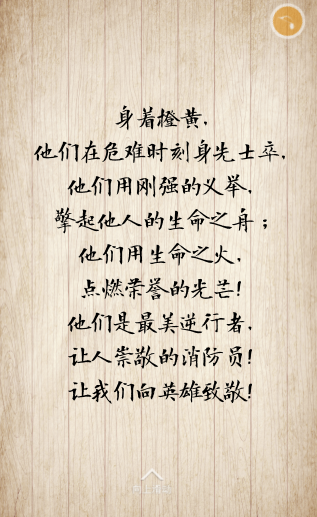 身着橙黄,
他们在危难时刻身先士卒,
他们用刚强的义举,
擎起他人的生命之舟；
他们用生命之火,
点燃荣誉的光芒!
他们是最美逆行者,
让人崇敬的消防员!
让我们向英雄致敬!